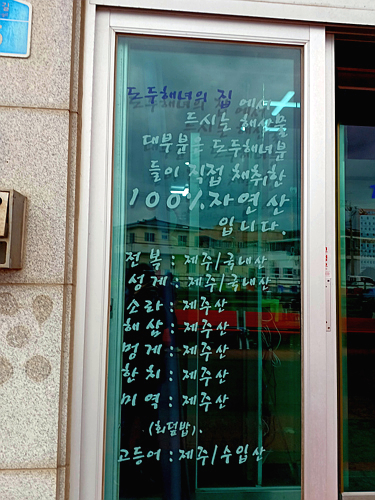 도두해녀의 집 에서
드시는 해산물
대부분은 도두해녀분
들이 직접 채취한
100% 자연산
입니다.
전복 : 제주/국내산
성게 : 제주/국내산
소라 : 제주산
해삼 : 제주산
멍게 : 제주산
한치 : 제주산
미역 : 제주산
(회덮밥).
고등어 : 제주/수입산